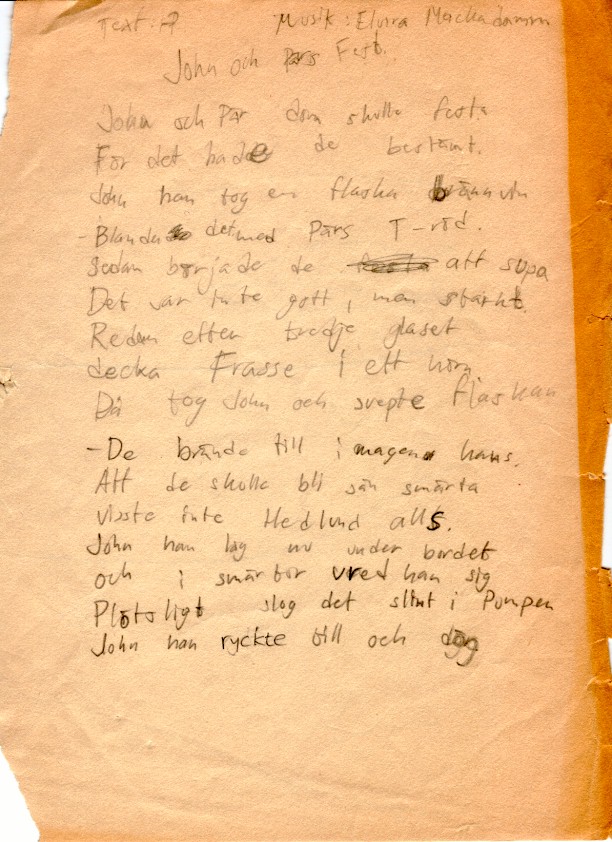 Text: P Musik: Elvira Mackadamm
John och Pärs Fest.
John och Pär dom skulle festa
För det hade de bestämt.
John han tog en flaska brännvin
- Blanda det med Pärs T-röd.
Sedan började de att supa
Det var inte gott, men starkt.
Redan efter tredje glaset
decka Frasse i ett hörn
Då tog John och svepte flaskan
- De brände till i magen hans.
Att de skulle bli sån smärta
visste inte Hedlund alls.
John han låg nu under bordet
och i smärtor vred han sig
Plötsligt slog det slint i Pumpen
John han ryckte till och dog